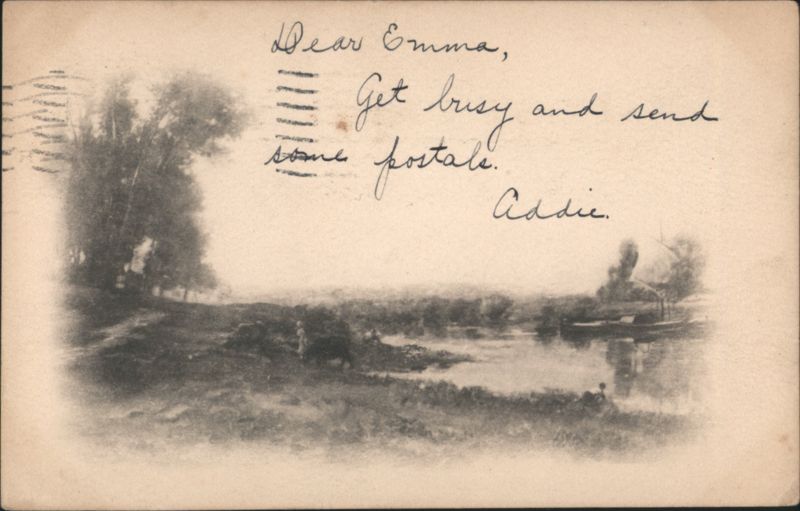 Dear Emma,
Get busy and send
some postals.
Addie.